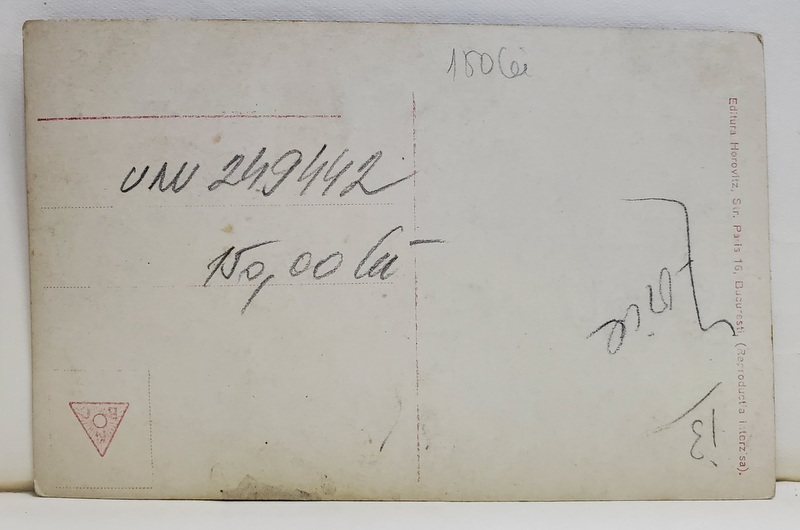 150 lei
UNU 249442
150,00 lei
Editura Horovitz, Str. Paris 16, Bucuresti (Reproductia interzisa).
13